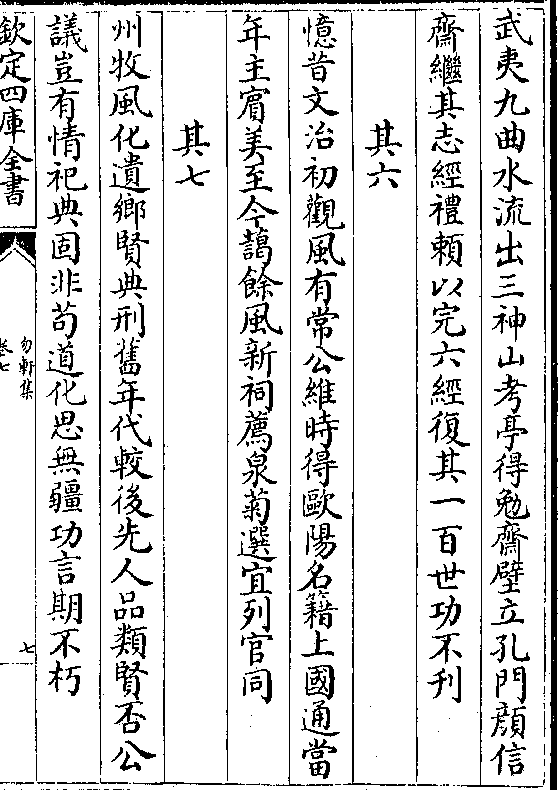 武夷九曲水流出三神山考亭得勉齋壁立孔門顔信
齋繼其志經禮頼以完六經復其一百世功不刋
其六
憶昔文治初觀風有常公維時得歐陽名籍上國通當
年主賔美至今藹餘風新祠薦泉菊選宜列官同
其七
州牧風化遺鄉賢典刑舊年代較後先人品類賢否公
議豈有情祀典固非苟道化思無疆功言期不朽
欽定四庫全書
勿軒集
卷七
七